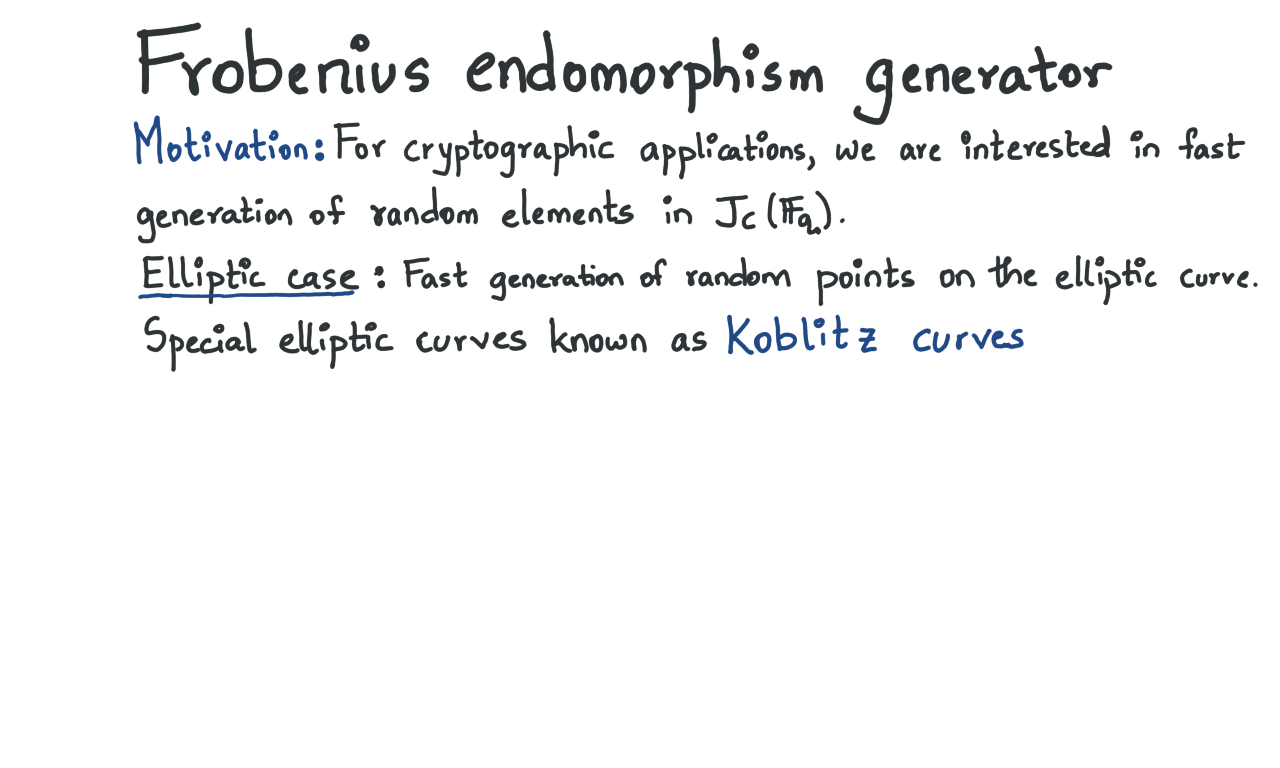 Frobenius endomorphism generator
Motivation: For cryptographic applications, we are interested in fast
generation of random elements in J_C(𝔽_q).
Elliptic case : Fast generation of random points on the elliptic curve.
Special elliptic curves known as Koblitz curves